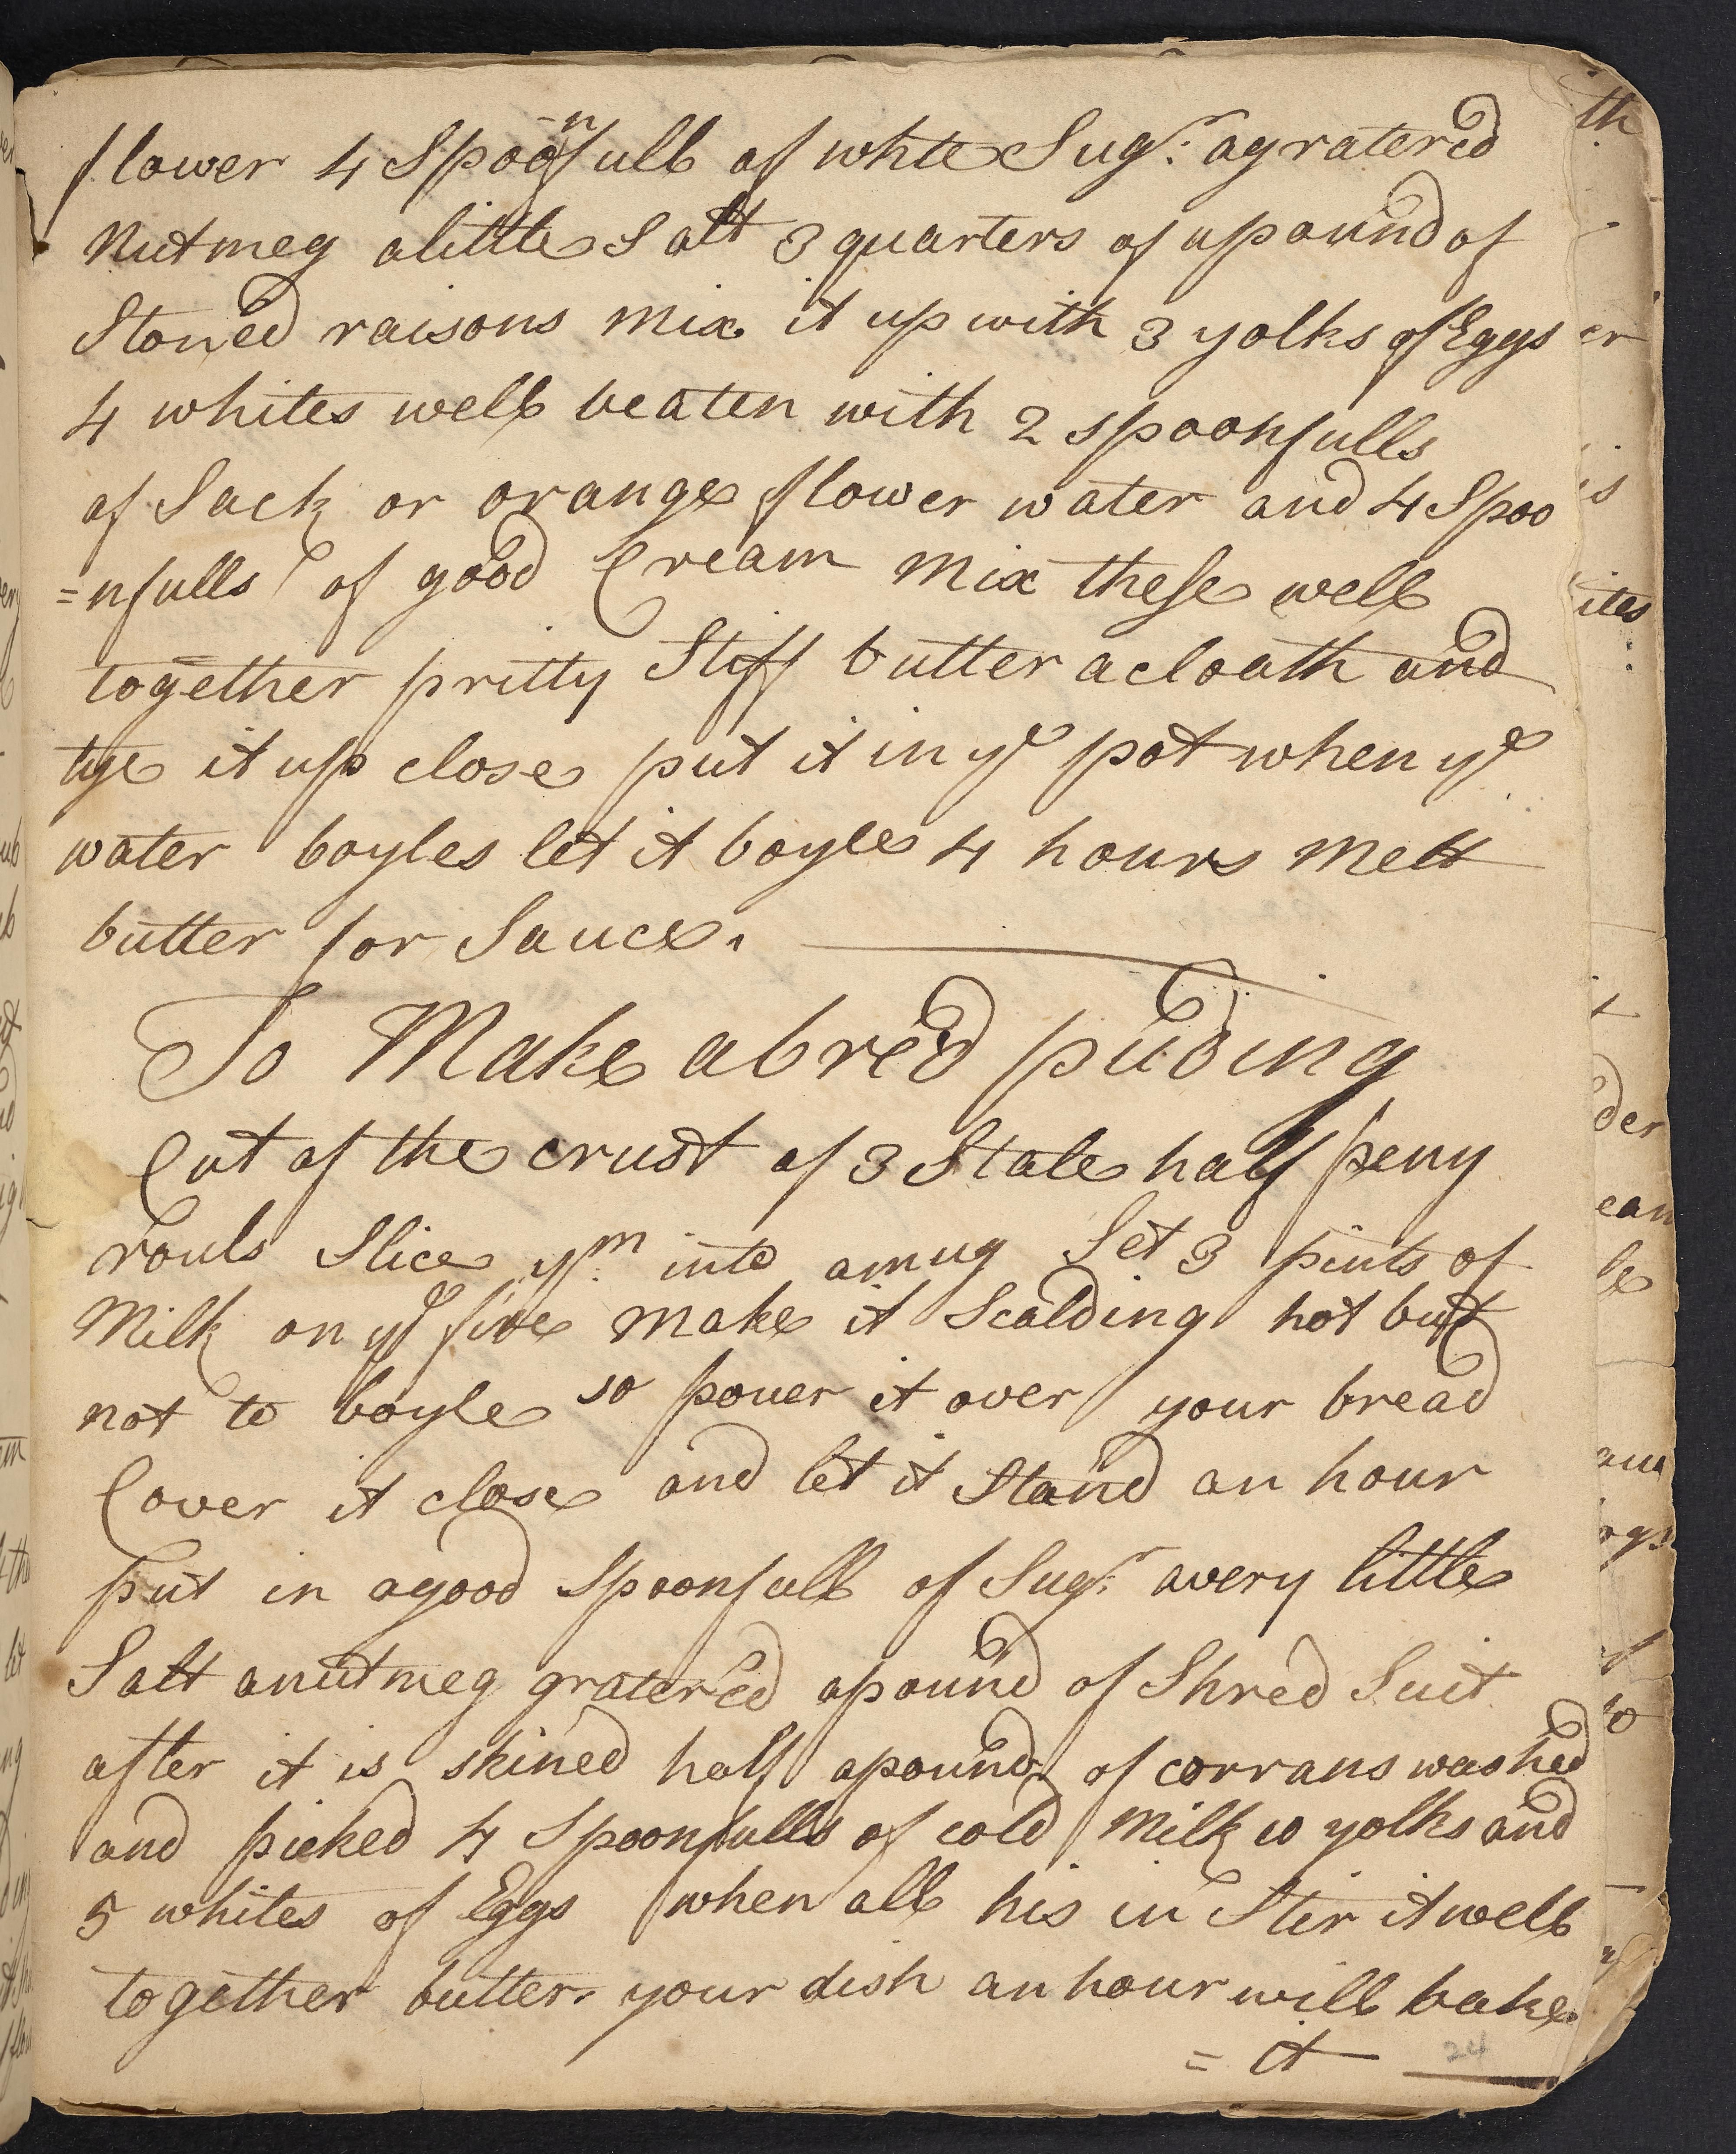 flower 4 Spoonfull of white Sugr: a gratered
Nutmeg a little Salt 3 quarters of a pound of
Stoned raisons mix it up with 3 yolks of Eggs
4 whites well beaten with 2 spoonfulls
of Sack or orange flower water and 4 Spoo
=nfulls of good Cream mix these well
together pritty Stiff butter a cloath and
tye it up close put it in ye pot when ye
water boyles let it boyle 4 hours melt
butter for Sauce.
To Make a bred puding
Cut of the crust of 3 Stale half peny
rouls Slice ym: into a mug Set 3 pints of
Milk on ye fire make it Scalding hot but
not to boyle so pouer it over your bread
Cover it close and let it Stand an hour
put in a good Spoonfull of Sugr: a very little
Salt a nutmeg gratered a pound of Shred Suit
after it is skined half a pound of corrans washed
and picked 4 Spoonfulls of cold Milk 10 yolks and
5 whites of Eggs when all his in Stir it well
together butter your dish an hour will bake
= it
24